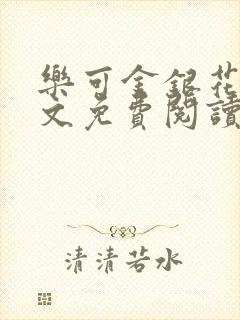 樂可金銀花
文免費閱讀
清清若水